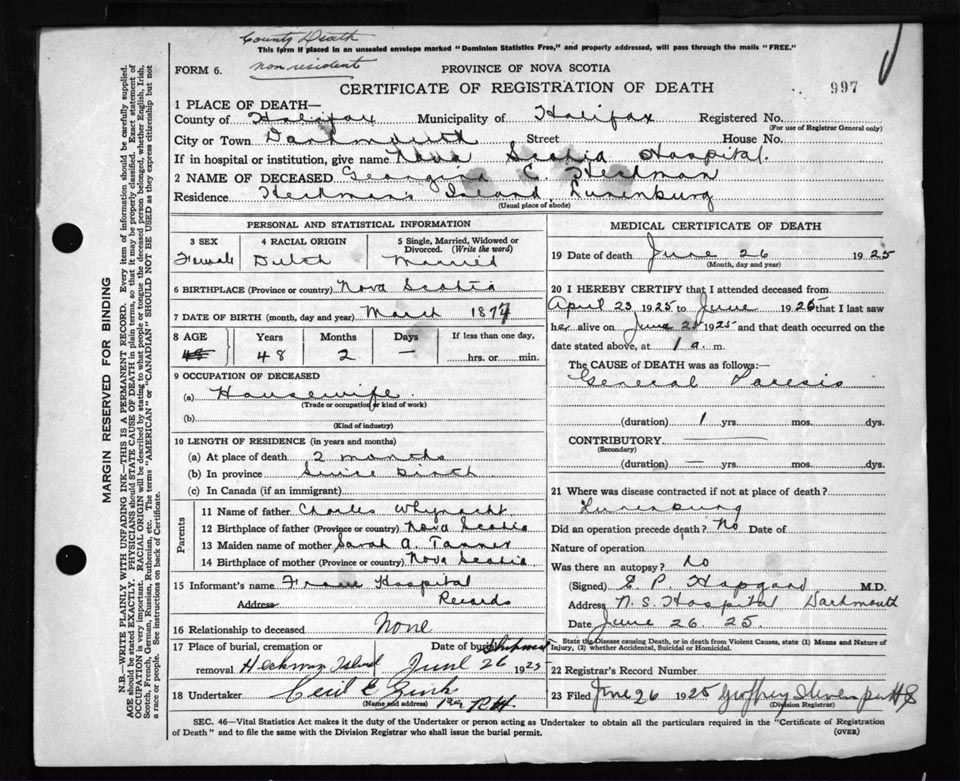 County Death
This form if placed in an unsealed envelope marked "Dominion Statistics Free," and properly addressed, will pass through the mails "FREE."
non resident
FORM 6.
PROVINCE OF NOVA SCOTIA
CERTIFICATE OF REGISTRATION OF DEATH
997
1 PLACE OF DEATH—
County of Halifax Municipality of Halifax Registered No.
(For use of Registrar General only)
City or Town Dartmouth Street House No.
If in hospital or institution, give name Nova Scotia Hospital.
2 NAME OF DECEASED Georgina C. Heckman
Residence Heckman's Island Lunenburg
(Usual place of abode)
PERSONAL AND STATISTICAL INFORMATION
3 SEX 4 RACIAL ORIGIN 5 Single, Married, Widowed or Divorced. (Write the word)
Female Dutch Married
6 BIRTHPLACE (Province or country) Nova Scotia
7 DATE OF BIRTH (month, day and year) March 1877
8 AGE Years Months Days If less than one day,
48 48 2 — hrs. or min.
9 OCCUPATION OF DECEASED
(a) Housewife
(Trade or occupation or kind of work)
(b)
(Kind of industry)
10 LENGTH OF RESIDENCE (in years and months)
(a) At place of death 2 months
(b) In province Since birth
(c) In Canada (if an immigrant)
Parents
11 Name of father Charles Whynacht
12 Birthplace of father (Province or country) Nova Scotia
13 Maiden name of mother Sarah A. Tanner
14 Birthplace of mother (Province or country) Nova Scotia
15 Informant's name From Hospital
Address Records
16 Relationship to deceased None
17 Place of burial, cremation or Date of burial Shipment
removal Heckman Island June 26 1925
18 Undertaker Cecil E. Zink
(Name and address)
MEDICAL CERTIFICATE OF DEATH
19 Date of death June 26 1925
(Month, day and year)
20 I HEREBY CERTIFY that I attended deceased from
April 23 1925 to June 1925 that I last saw
her alive on June 25 1925 and that death occurred on the
date stated above, at 1 a. m.
The CAUSE of DEATH was as follows:—
General Paresis
(duration) 1 yrs. mos. dys.
CONTRIBUTORY —
(Secondary)
(duration) — yrs. mos. dys.
21 Where was disease contracted if not at place of death?
Lunenburg
Did an operation precede death? No Date of
Nature of operation
Was there an autopsy? No
(Signed) E. P. Hapgood M.D.
Address N. S. Hospital Dartmouth
Date June 26. 25.
State the Disease causing Death, or in death from Violent Causes, state (1) Means and Nature of
Injury, (2) whether Accidental, Suicidal or Homicidal.
22 Registrar's Record Number
23 Filed June 26 1925 Geoffrey Stevens
(Division Registrar)
SEC. 46—Vital Statistics Act makes it the duty of the Undertaker or person acting as Undertaker to obtain all the particulars required in the "Certificate of Registration
of Death" and to file the same with the Division Registrar who shall issue the burial permit.
(OVER)
MARGIN RESERVED FOR BINDING
N.B.—WRITE PLAINLY WITH UNFADING INK—THIS IS A PERMANENT RECORD. Every item of information should be carefully supplied.
AGE should be stated EXACTLY. PHYSICIANS should STATE CAUSE OF DEATH in plain terms, so that it may be properly classified. Exact statement of
OCCUPATION is very important. RACIAL ORIGIN will be described by stating to what people or tongue the deceased person belonged, whether English, Irish,
Scotch, French, German, Russian, Ruthenian, etc. The terms "AMERICAN" or "CANADIAN" SHOULD NOT BE USED as they express citizenship but not
a race or people. See instructions on back of Certificate.